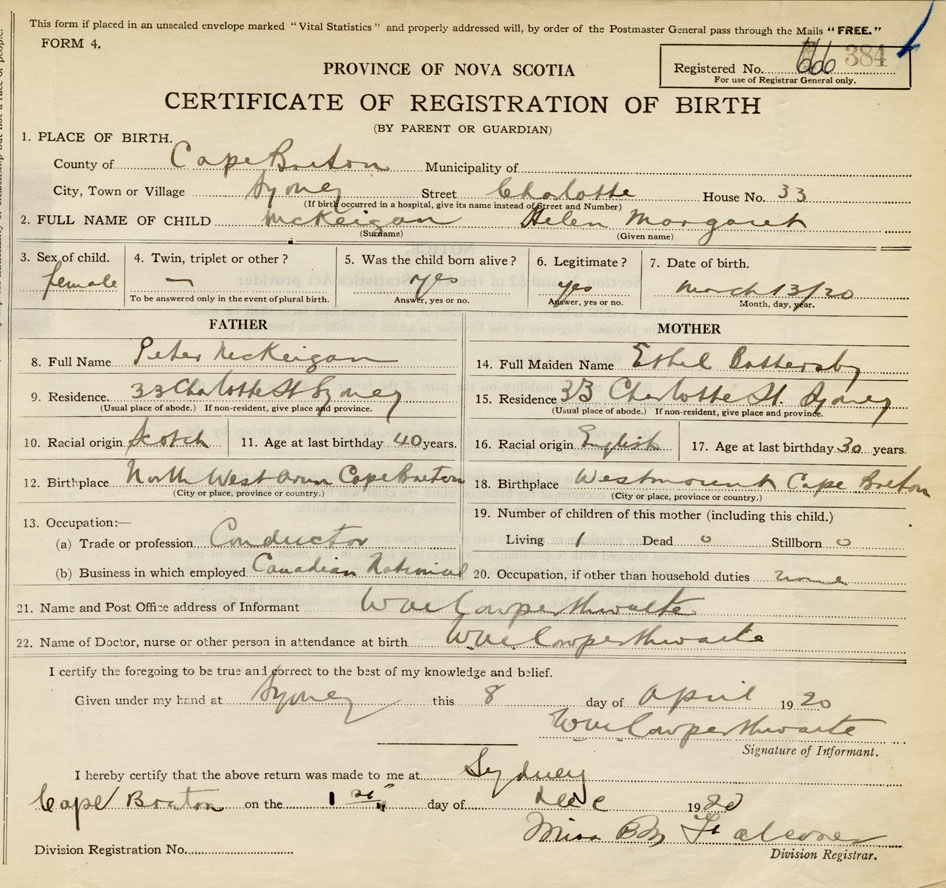 This form if placed in an unsealed envelope marked "Vital Statistics" and properly addressed will, by order of the Postmaster General pass through the Mails "FREE."
FORM 4.
Registered No. 66 384
For use of Registrar General only.
PROVINCE OF NOVA SCOTIA
CERTIFICATE OF REGISTRATION OF BIRTH
(BY PARENT OR GUARDIAN)
1. PLACE OF BIRTH.
County of Cape Breton Municipality of
City, Town or Village Sydney Street Charlotte House No. 33
(If birth occurred in a hospital, give its name instead of Street and Number)
2. FULL NAME OF CHILD McKeigan Helen Margaret
(Surname) (Given name)
3. Sex of child. 4. Twin, triplet or other? 5. Was the child born alive? 6. Legitimate? 7. Date of birth.
female — yes yes March 13/20
To be answered only in the event of plural birth. Answer, yes or no. Answer, yes or no. Month, day, year.
FATHER MOTHER
8. Full Name Peter McKeigan 14. Full Maiden Name Ethel Battersby
9. Residence. 33 Charlotte St Sydney 15. Residence 33 Charlotte St. Sydney
(Usual place of abode.) If non-resident, give place and province. (Usual place of abode.) If non-resident, give place and province.
10. Racial origin Scotch 11. Age at last birthday 40 years. 16. Racial origin English 17. Age at last birthday 30 years.
12. Birthplace North West Arm Cape Breton 18. Birthplace Westmount Cape Breton
(City or place, province or country.) (City or place, province or country.)
13. Occupation:— 19. Number of children of this mother (including this child.)
(a) Trade or profession Conductor Living 1 Dead 0 Stillborn 0
(b) Business in which employed Canadian National 20. Occupation, if other than household duties none
21. Name and Post Office address of Informant Wm Cowperthwaite
22. Name of Doctor, nurse or other person in attendance at birth Wm Cowperthwaite
I certify the foregoing to be true and correct to the best of my knowledge and belief.
Given under my hand at Sydney this 8 day of April 1920
Wm Cowperthwaite
Signature of Informant.
I hereby certify that the above return was made to me at Sydney
Cape Breton on the 1st day of Dec 1920
Miss Falconer
Division Registrar.
Division Registration No.